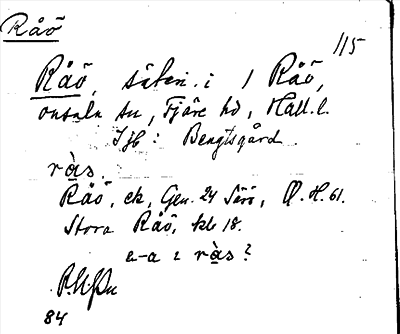 Råö
115
Råö, säteri i 1 Råö,
Onsala sn, Fjäre hd, Hall. l.
Jfb: Bengtsgård.
rås.
Råö, ek, Gen. 24 Särö, Q.H. 61.
Stora Råö, kbl 18.
u-a i rås?
84